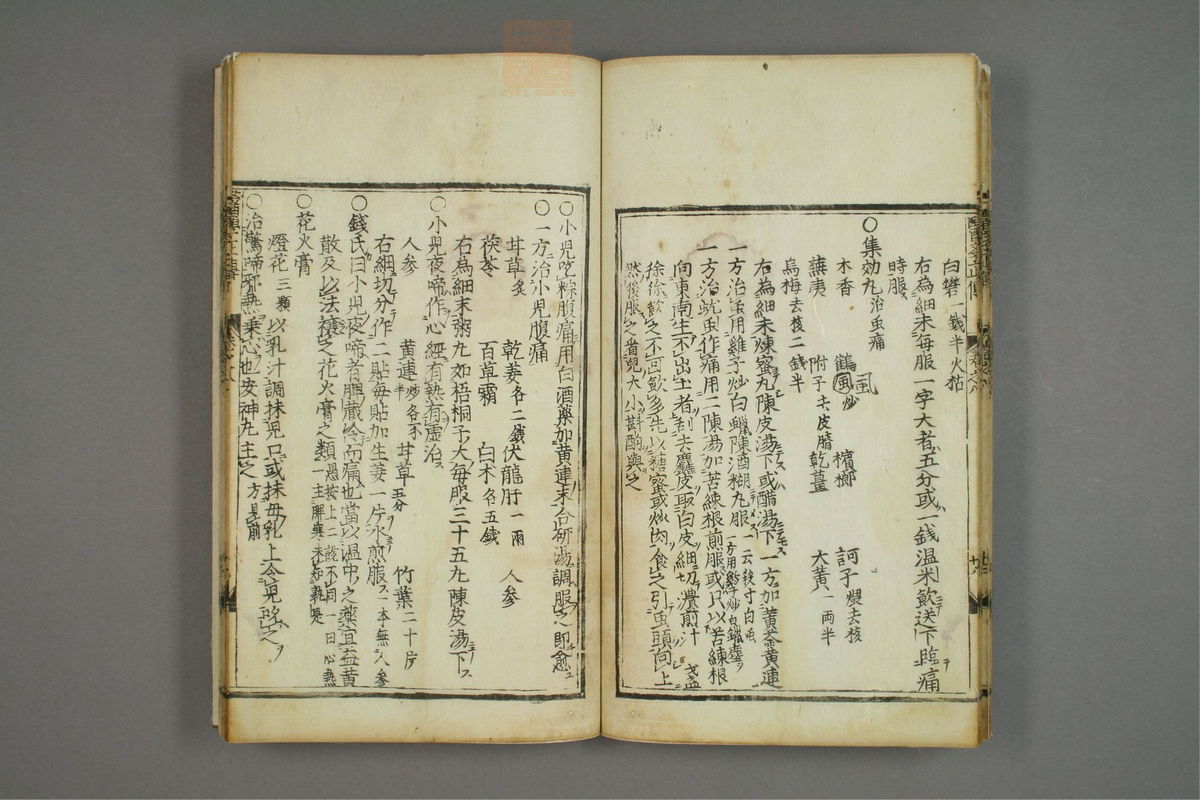 白礬一錢半火枯
右為細末毎服一字大者五分或一錢温米飲送下臨痛
時服
○集効丸治虫痛
木香 鶴虱炒 檳榔 訶子煨去核
蕪荑 附子去皮臍乾薑 大黄一兩半
烏梅去核二錢半
右為細末煉蜜丸陳皮湯下或醋湯下一方加黄芩黄連
一方治虫用雞子炒白蠟陳酒糊丸服
一方治蚘虫作痛用二陳湯加苦練根煎服或只以苦練根
向東南生不出土者刮去麄皮取白皮細切濃煎十
徐徐飲之不可飲多先以糖蜜或炒肉食之引虫頭向上
然後服之看兒大小斟酌與之
○小兒吃粽腹痛用白酒藥加黄連末合研湯調服之即愈
○一方治小兒腹痛
甘草炙 乾姜各二錢伏龍肝一兩 人參
茯苓 百草霜 白朮各五錢
右為細末粥丸如梧桐子大毎服三十五丸陳皮湯下
○小兒夜啼作心經有熱有虚治
人參 黄連炒各半 甘草五分 竹葉二十片
右細切分作二貼毎貼加生姜一片水煎服一本無人參
○錢氏曰小兒夜啼者脾藏冷而痛也當以温中之藥宜益黄
散及以法禳之花火膏之類愚按上二說不同一曰心熱
一主脾寒
○花火膏
燈花三顆 以乳汁調抹兒口或抹母乳上令兒吮之
○治驚啼邪熱乗心也安神丸主之方見前